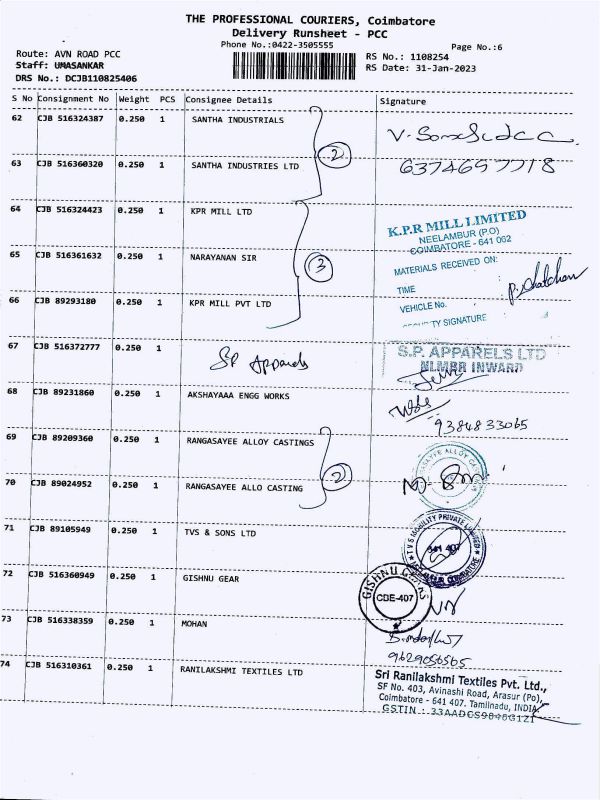 THE PROFESSIONAL COURIERS, Coimbatore
Delivery Runsheet - PCC
Phone No.:0422-3505555
Page No.:6
Route: AVN ROAD PCC
Staff: UMASANKAR
DRS No.: DCJB110825406
RS No.: 1108254
RS Date: 31-Jan-2023
S No Consignment No Weight PCS Consignee Details Signature
62 CJB 516324387 0.250 1 SANTHA INDUSTRIALS
2
63 CJB 516360320 0.250 1 SANTHA INDUSTRIES LTD 6374697718
64 CJB 516324423 0.250 1 KPR MILL LTD
K.P.R MILL LIMITED
NEELAMBUR (P.O)
COIMBATORE - 641 062
65 CJB 516361632 0.250 1 NARAYANAN SIR
3
MATERIALS RECEIVED ON:
TIME
66 CJB 89293180 0.250 1 KPR MILL PVT LTD
VEHICLE No.
SIGNATURE
67 CJB 516372777 0.250 1 SP Apparels
S.P. APPARELS LTD
NLMBR INWARD
68 CJB 89231860 0.250 1 AKSHAYAAA ENGG WORKS
9384833065
69 CJB 89209360 0.250 1 RANGASAYEE ALLOY CASTINGS
2
70 CJB 89024952 0.250 1 RANGASAYEE ALLO CASTING
71 CJB 89105949 0.250 1 TVS & SONS LTD
TVS MOBILITY PRIVATE LIMITED
641 407
72 CJB 516360949 0.250 1 GISHNU GEAR
GISHNU GEARS
CDE-407
73 CJB 516338359 0.250 1 MOHAN
9629056565
74 CJB 516310361 0.250 1 RANILAKSHMI TEXTILES LTD
Sri Ranilakshmi Textiles Pvt. Ltd.,
SF No. 403, Avinashi Road, Arasur (Po),
Coimbatore - 641 407. Tamilnadu, INDIA